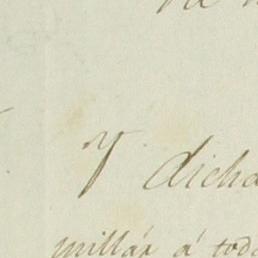 Y dicha
millár á toda